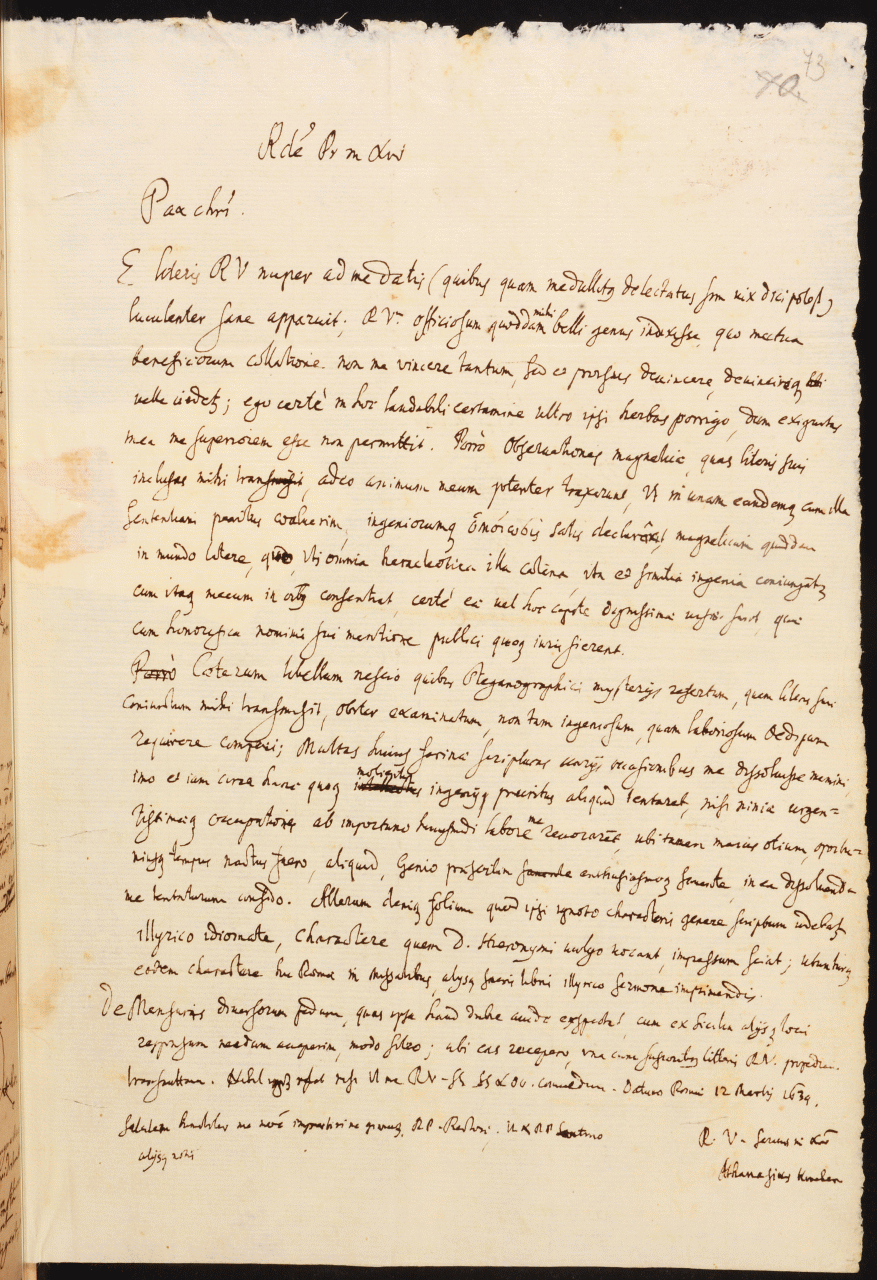 73
70.
Rde Pr in Xro
Pax chri.
E literis RV nuper ad me datis (quibus quam medullitus delectatus sim vix dici potest)
luculenter sane apparuit; RVm officiosum quoddam mihi belli genus indixisse, quo mutua
beneficiorum collatione non me vincere tantum, sed et prorsus devincire,
velle videtur; ego certè in hoc laudabili certamine ultro ipsi herbas porrigo, dum exiguitas
mea me superiorem esse non permittit. Porrò Observationes magneticae, quas literis suis
inclusas mihi transmisit, adeo animum meum potenter traxerunt, ut in unam eandemq cum illa
sententiam penitus evaluerim, ingeniorumq satis declararet, magneticum quiddam
in mundo latere, quo, uti omnia heracleotica illa catena ita et similia ingenia coniungantur
cum itaq mecum in consentiat, certè ea vel hoc capite dignissima sunt, quae
cum honorifica nominis sui mentione publici quoq iuris fierent.
Porrò Caeterum libellum nescio quibus steganographici mysterijs refertum, quem literis suis
coniunctum mihi transmisit, obiter examinatum, non tam ingeniosum, quam laboriosum Oedipum
requirere comperi; Multas huius farinae scripturas varijs occasionibus me dissolvisse memini
imo et iam circa hanc quoq molientis ingenijq pruritus aliquid tentaret, nisi nimia urgen=
tissimaq occupationes ab importuno huiusmodi labore me revocaret, ubi tamen maius otium, oportu-
niusq tempus nactus fuero, aliquid, Genio praesertim enthusiasmoq favente, in ea dissolvenda
me tentaturum confido. Alterum deniq folium quod ipsi ignoto characteris genere scriptum videbatur
illyrico idiomate, charactere quem D. Hieronymi vulgo vocant, impressum sciat; utunturq
eodem charactere hic Romae in missalibus, alijsq sacris libris illyrico sermone imprimendis.
De Mensuris diversorum pedum, quas ipse haud dubie avide exspectat, cum ex Sicilia alijsq locis
responsum needum acceperim, modo sileo; ubi eas recepero, una cum literis RV.
transmittam. Nihil restat nisi ut me RV SS SS et OO. commendem. Datum Romae 12 Martij 1639.
Salutem RP. Rectori, ut et RP Santino
alijsq notis
R. V. Servus in Xro
Athanasius Kircher